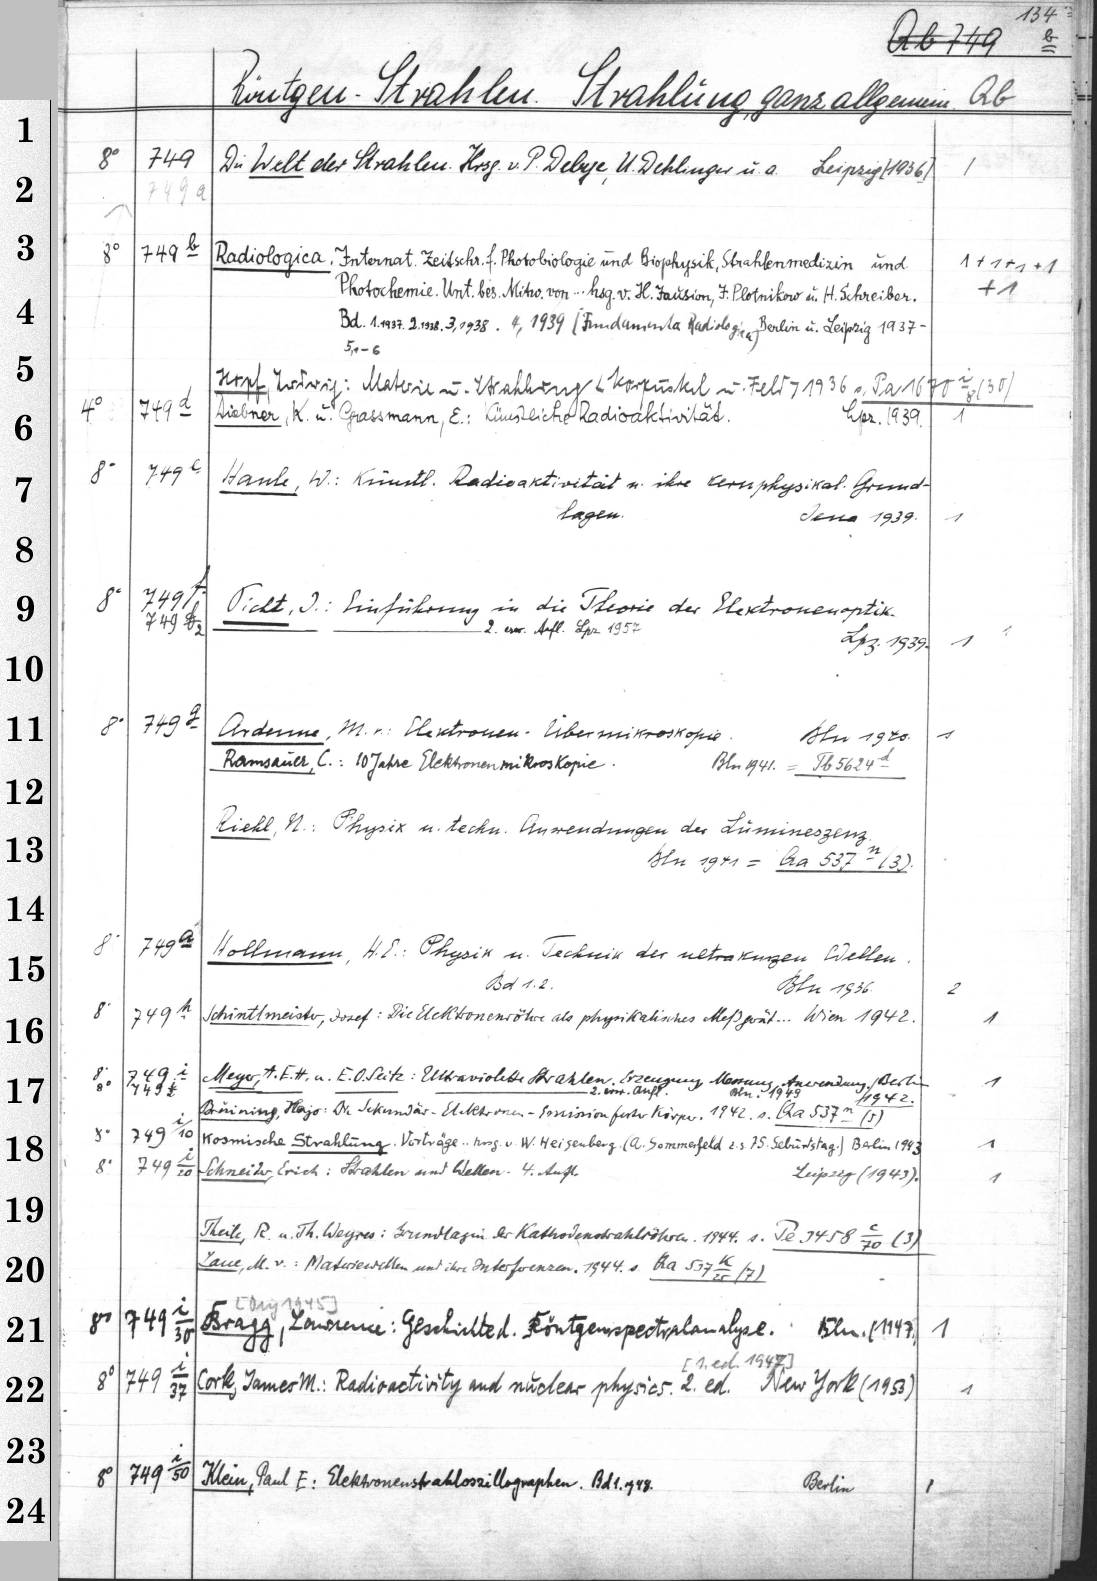 134
b
Qb 749
Röntgen-Strahlen. Strahlung, ganz allgemein. Qb
1
8° 749 Die Welt der Strahlen. Hrsg. v. P. Debye, U. Dehlinger u. a. Leipzig (1936) 1
2 749 a
3 8° 749 b Radiologica. Internat. Zeitschr. f. Photobiologie und Biophysik, Strahlenmedizin und 1+1+1+1
Photochemie. Unt. bes. Mitw. von ... hsg. v. H. Jausion, J. Plotnikow u. H. Schreiber. +1
4 Bd. 1.1937. 2.1938. 3,1938. 4, 1939 (Fundamenta Radiologica) Berlin u. Leipzig 1937-
5,1-6
5 Hopf, Ludwig: Materie u. Strahlung (Korpuskel u. Feld) 1936 s. Pa 1670 i/8 (30)
6 4° 749 d Diebner, K. u. Grassmann, E.: Künstliche Radioaktivität. Lpz. 1939. 1
7 8° 749 e Hanle, W.: Künstl. Radioaktivität u. ihre kernphysikal. Grund-
lagen. Jena 1939. 1
8
9 8° 749 f Picht, J.: Einführung in die Theorie der Elektronenoptik.
749 f2 2. erw. Aufl. Lpz 1957
Lpz. 1939. 1
10
11 8° 749 g Ardenne, M. v.: Elektronen-Übermikroskopie. Bln 1940. 1
Ramsauer, C.: 10 Jahre Elektronenmikroskopie. Bln 1941. = Tb 5624 d
12
Riehl, N.: Physik u. techn. Anwendungen der Lumineszenz.
13 Bln 1941 = Qa 537 n (3).
14
8° 749 a Hollmann, H. E.: Physik u. Technik der ultrakurzen Wellen.
15 Bd 1.2. Bln 1936. 2
16 8° 749 h Schintlmeister, Josef: Die Elektronenröhre als physikalisches Meßgerät... Wien 1942. 1
17 8° 749 i Meyer, A. E. H. u. E. O. Seitz: Ultraviolette Strahlen. Erzeugung, Messung, Anwendung. Berlin 1
8° 749 i 2. verb. Aufl. Bln. 1949 1942.
Brüining, Hajo: Die Sekundär-Elektronen-Emission fester Körper. 1942. s. Qa 537 n (5)
18 8° 749 i/10 Kosmische Strahlung. Vorträge.. hrsg. v. W. Heisenberg. (A. Sommerfeld z. s. 75. Geburtstag.) Berlin 1943 1
8° 749 i/20 Schneider, Erich: Strahlen und Wellen. 4. Aufl. Leipzig (1943). 1
19
Theile, R. u. Th. Weyres: Grundlagen der Kathodenstrahlröhren. 1944. s. Pe 3458 c/70 (3)
20 Laue, M. v.: Materiewellen und ihre Interferenzen. 1944. s. Qa 537 k/25 (7)
[Orig 1945]
21 8° 749 i/30 Bragg, Lawrence: Geschichte d. Röntgenspectralanalyse. Bln. (1947) 1
[1. ed. 1947]
22 8° 749 i/37 Cork, James M.: Radioactivity and nuclear physics. 2. ed. New York (1953) 1
23
8° 749 i/50 Klein, Paul E: Elektronenstrahloszillographen. Bd 1. 1948. Berlin 1
24